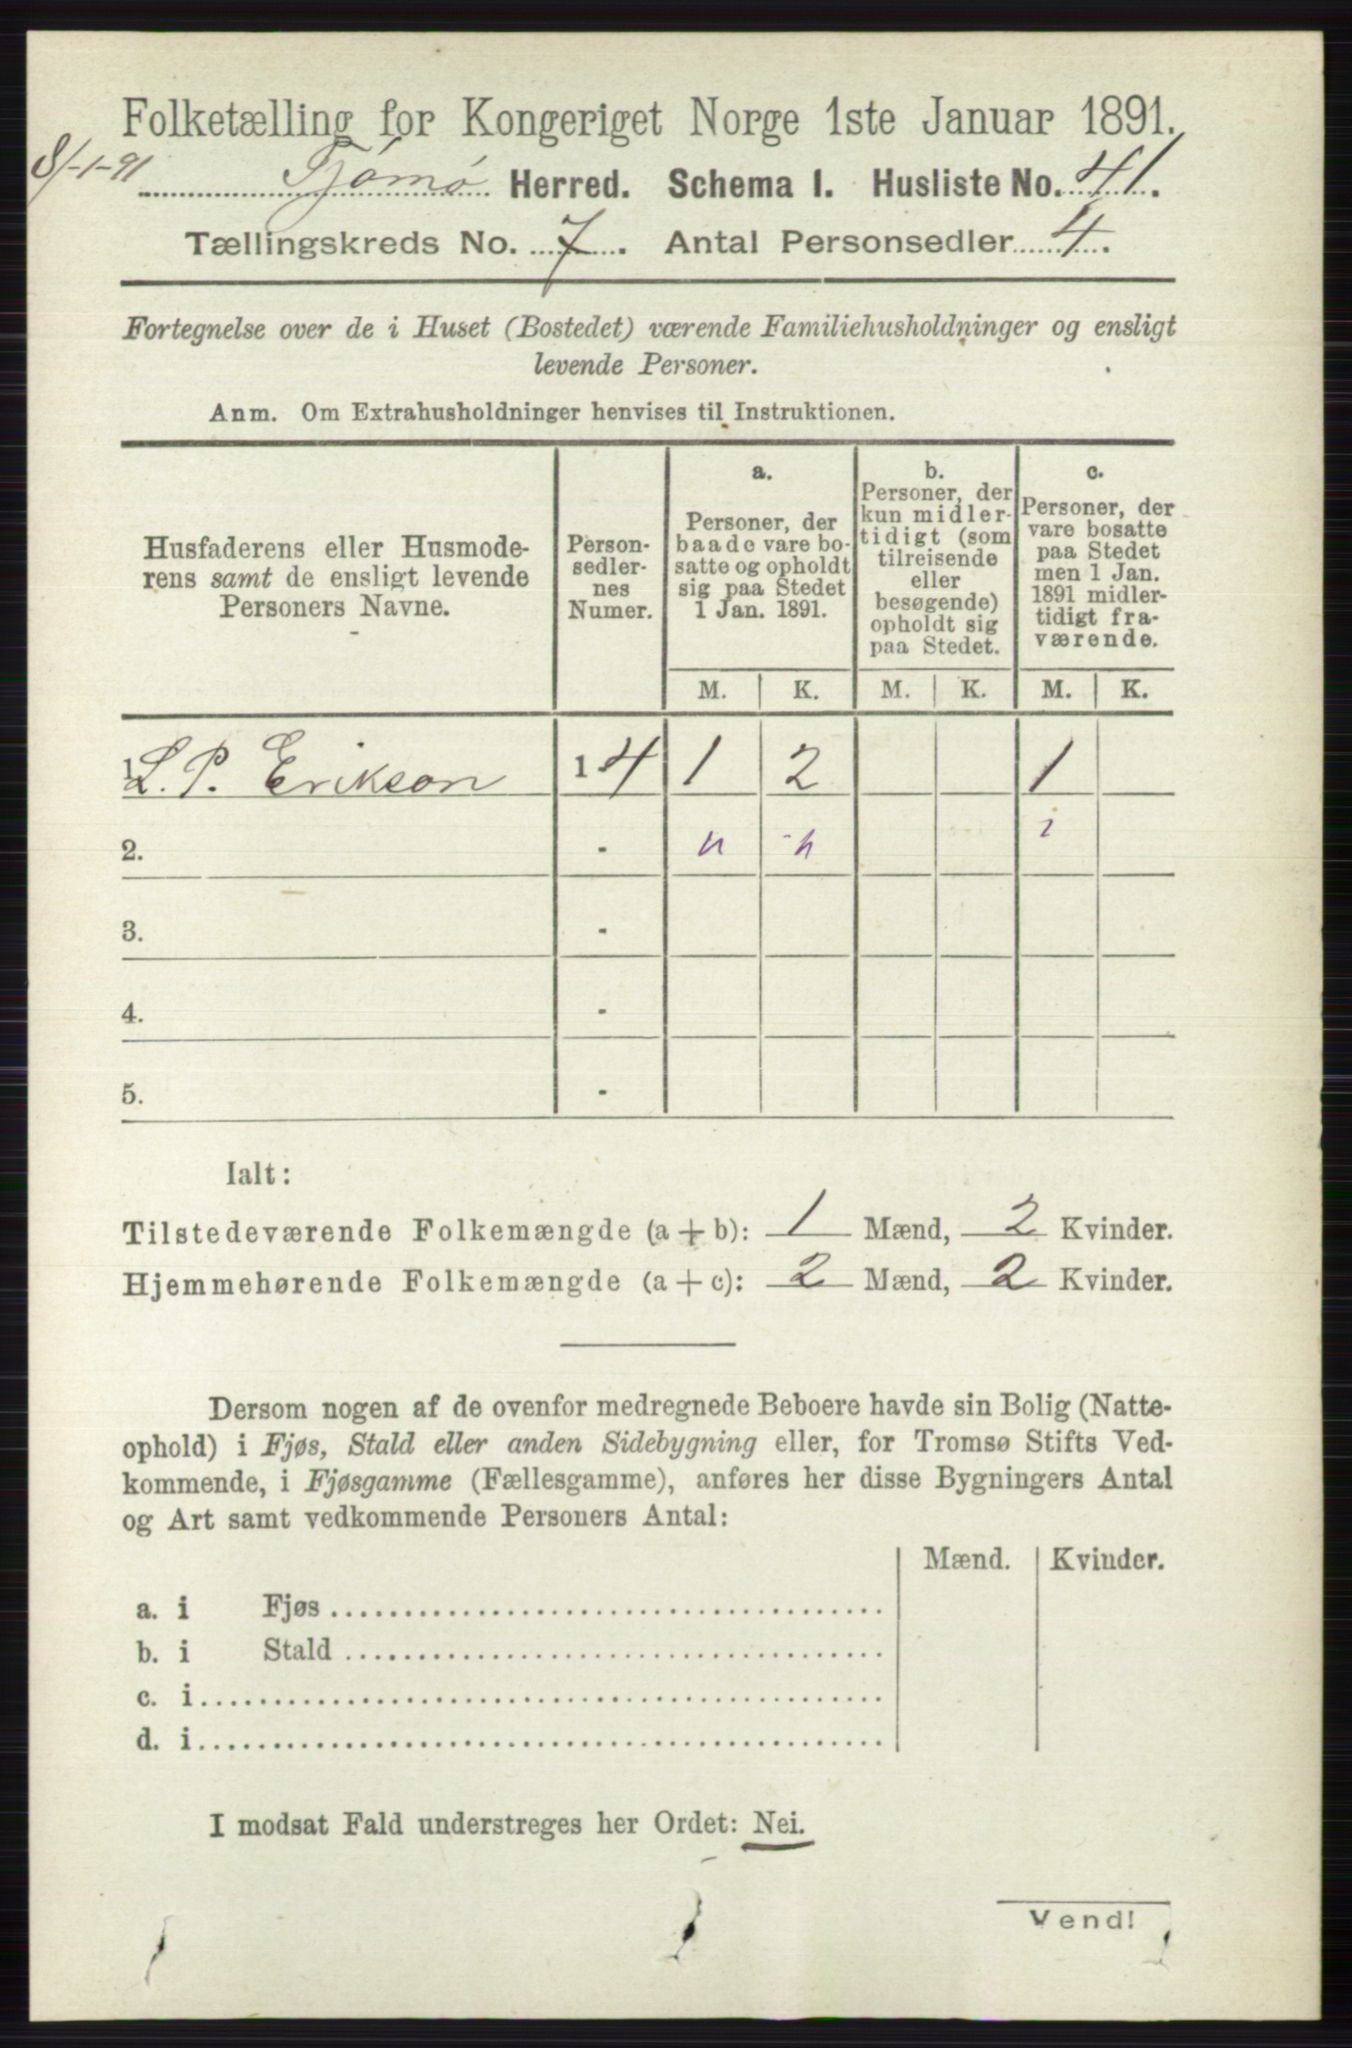 Folketælling for Kongeriget Norge 1ste Januar 1891.
8/-1-91
Tjömö Herred. Schema I. Husliste No. 41.
Tællingskreds No. 7. Antal Personsedler 4.
Fortegnelse over de i Huset (Bostedet) værende Familiehusholdninger og ensligt
levende Personer.
Anm. Om Extrahusholdninger henvises til Instruktionen.
Husfaderens eller Husmode-
rens samt de ensligt levende
Personers Navne.
Person-
sedler-
nes
Numer.
a.
Personer, der
baade vare bo-
satte og opholdt
sig paa Stedet
1 Jan. 1891.
b.
Personer, der
kun midler-
tidigt (som
tilreisende
eller
besøgende)
opholdt sig
paa Stedet.
c.
Personer, der
vare bosatte
paa Stedet
men 1 Jan.
1891 midler-
tidigt fra-
værende.
M. K. M. K. M. K.
1. L. P. Erikson 1-4 1 2 1
2. -
3. -
4. -
5. -
Ialt:
Tilstedeværende Folkemængde (a + b): 1 Mænd, 2 Kvinder.
Hjemmehørende Folkemængde (a + c): 2 Mænd, 2 Kvinder.
Dersom nogen af de ovenfor medregnede Beboere havde sin Bolig (Natte-
ophold) i Fjøs, Stald eller anden Sidebygning eller, for Tromsø Stifts Ved-
kommende, i Fjøsgamme (Fællesgamme), anføres her disse Bygningers Antal
og Art samt vedkommende Personers Antal:
Mænd. Kvinder.
a. i Fjøs
b. i Stald
c. i
d. i
I modsat Fald understreges her Ordet: Nei.
Vend!